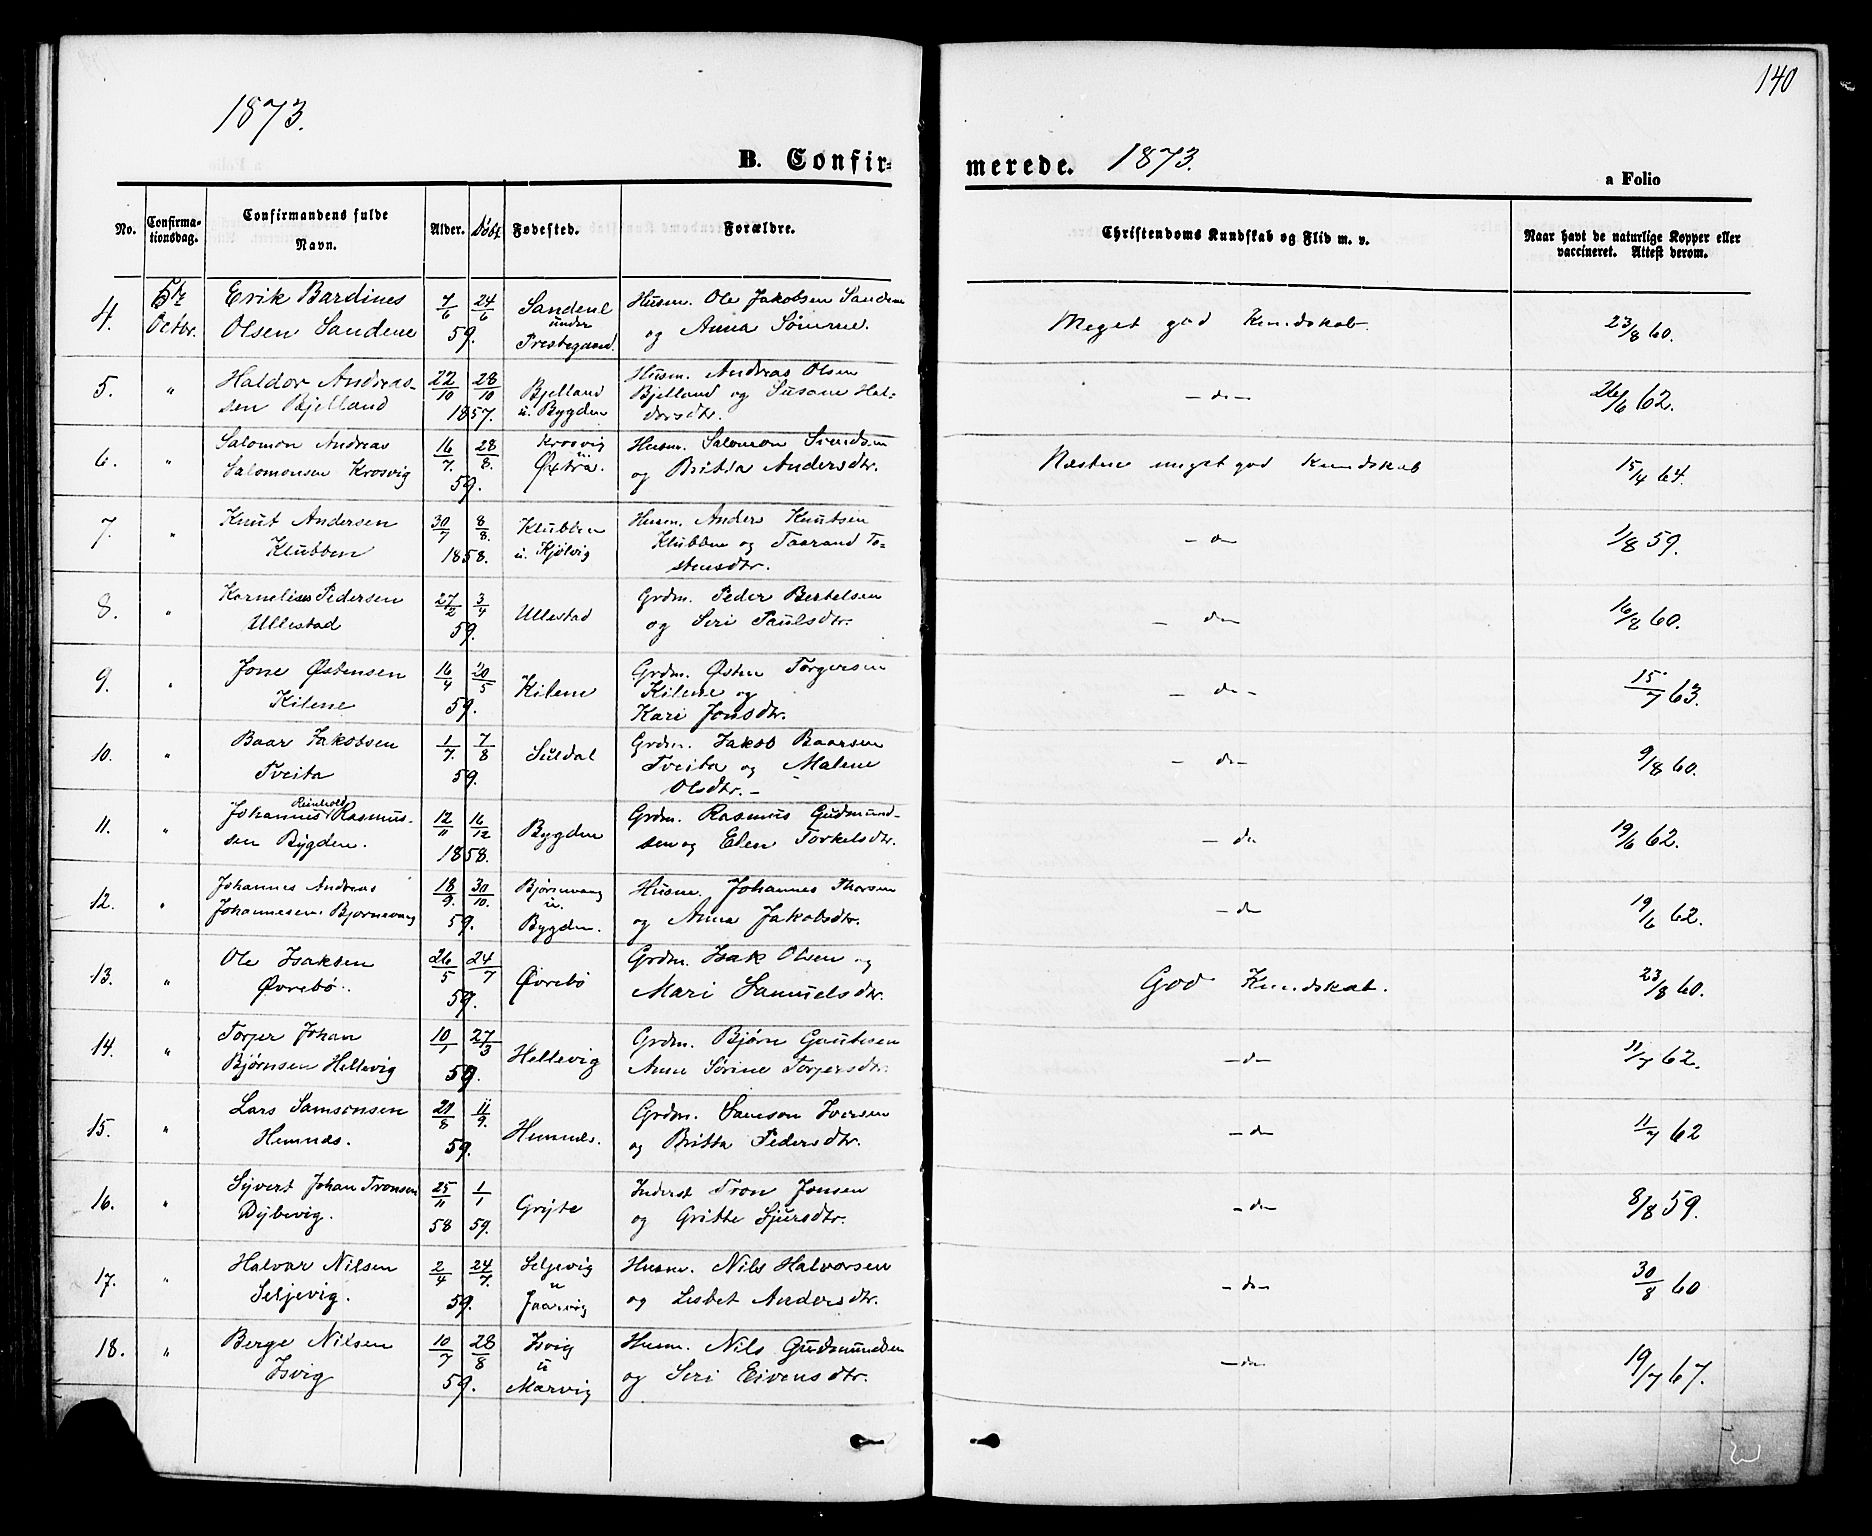 140
1873.
B. Confir-
merede. 1873.
a Folio
No. Confirma-tionsdag. Confirmandens fulde Navn. Alder. Døbt Fødested. Forældre. Christendoms Kundskab og Flid m. v. Naar havt de naturlige Kopper eller vaccineret. Attest derom.
4. 5te Octbr. Erik Bardines 7/6 24/6 Sandene Husm. Ole Jakobsen Sandene
Olsen Sandene 59. under Prestegaard. og Anna Sørine. Meget god Kundskab. 23/8 60.
5. " Haldor Andreas- 22/10 28/10 Bjelland Husm. Andreas Olsen
sen Bjelland 1857. u. Bygden Bjelland og Susane Hal- -do- 26/6 62.
dorsdtr.
6. " Salomon Andreas 16/7. 28/8. Krosvig Husm. Salomon
Salomonsen Krosvig 59. u. Øxtra. og Britta Andersdtr. Næsten meget god Kundskab 15/4 64.
7. " Knut Andersen 30/7 8/8. Klubben Husm. Anders Knutsen
Klubben 1858. u. Kjölvig Klubben og Taarand To- - do 1/8 59.
stensdtr.
8. " Kornelius Pedersen 27/2 3/4 Ullestad Grdm. Peder Bertelsen
Ullestad 59. og Seri Paulsdtr. - do 16/8 60.
9. " Jone Østensen 16/4 20/5 Kilene Grdm. Østen Torgersen
Kilene 59. Kilene og - do - 15/7 63.
Kari Jonsdtr.
10. " Baar Jakobsen 1/7. 7/8 Suldal Grdm. Jakob Baarsen
Tveita 59. Tveita og Malene - do- 9/8 60.
Olsdtr. -
11. " Johannes Reinhold Rasmus- 12/11 16/12 Bygden Grdm. Rasmus Gudmund-
sen Bygden. 1858. sen og Elen Torkelsdtr. - do 19/6 62.
12. " Johannes Andreas 18/9. 30/10. Bjørnevang Husm. Johannes Thorsen
Johannesen Bjørnevang 59. u. Bygden. og Anna Jakobsdtr. - do 19/6 62.
13. " Ole Isaksen 26/5 24/7 Øvrebö Grdm. Isak Olsen og
Øvrebö. 59. Mari Samuelsdtr. God Kundskab. 23/8 60.
14. " Torjer Johan 10/1 27/3 Hellevig Grdm. Bjørn Gautesen
Bjørnsen Hellevig 59. Anne Sørine Torjersdtr. -do- 11/7 62.
15. " Lars Samsonsen 21/8 11/9. Hemnes. Grdm. Samson Iversen
Hemnes. 59. og Britta Pedersdtr. - do 11/7 62
16. " Syvert Johan Tronsen 25/11 1/1 Gryte Inderst Tron Jonsen
Dybevig. 58 59. og Gritte Sjursdtr. - do 8/8 59.
17. " Halvor Nilsen 2/4 24/7. Seljevig Husm. Nils Halvorsen
Seljevig. 59. u Jaarvig og Lisbet Andersdtr. - do- 30/8 60
18. " Berge Nilsen 10/7 28/8 Isvig Husm. Nils Gudmundsen
Isvig 59. u Marvig og Seri Eivensdtr. -do- 19/7 67.